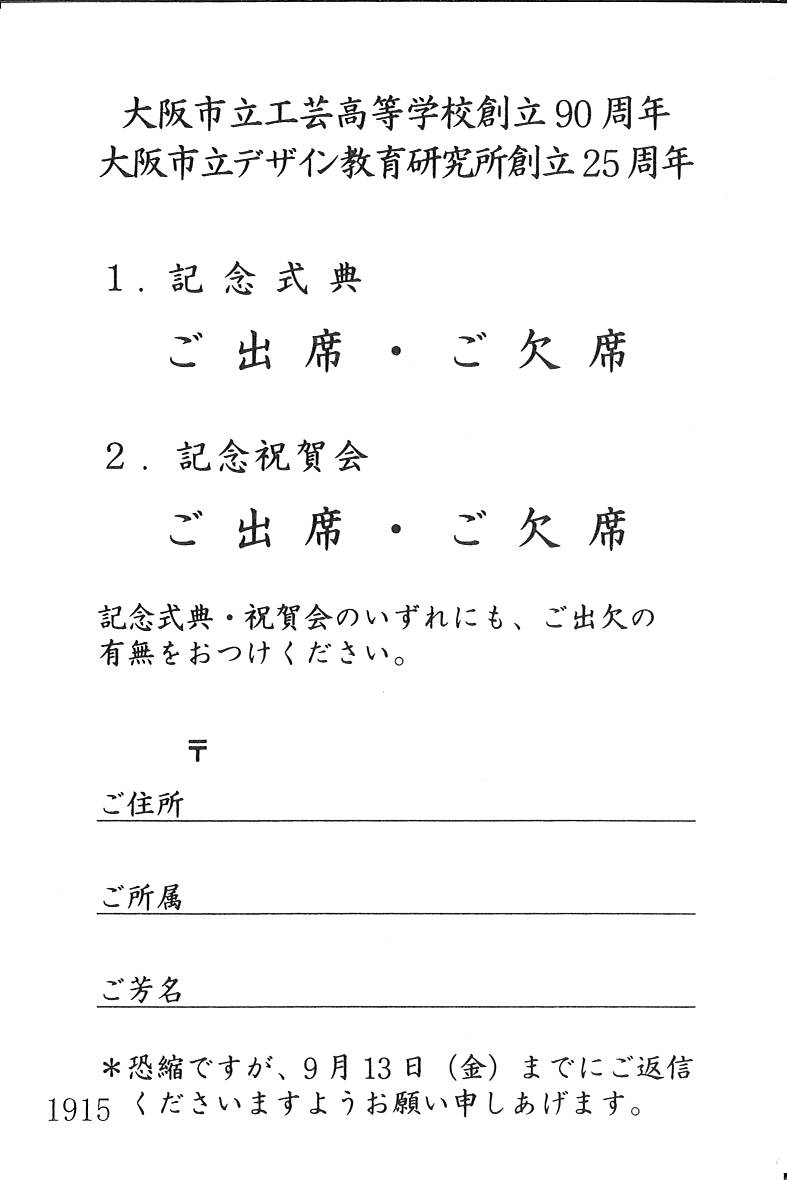 大阪市立工芸高等学校創立90周年
大阪市立デザイン教育研究所創立25周年
1．記念式典
ご出席・ご欠席
2．記念祝賀会
ご出席・ご欠席
記念式典・祝賀会のいずれにも、ご出欠の
有無をおつけください。
〒
ご住所
ご所属
ご芳名
＊恐縮ですが、9月13日（金）までにご返信
くださいますようお願い申しあげます。
1915